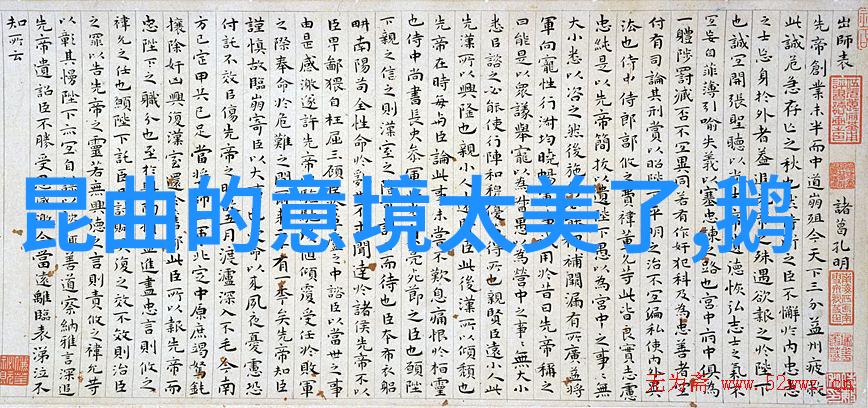 出師表 諸葛孔明
先帝創業未半而中道崩殂今天下三分益州疲弊
此誠危急存亡之秋也然侍衛之臣不懈於內忠志
之士忘身於外者蓋追先帝之殊遇欲報之於陛下
也誠宜開張聖聽以光先帝遺德恢弘志士之氣不
宜妄自菲薄引喻失義以塞忠諫之路也宮中府中俱為
一體陟罰臧否不宜異同若有作奸犯科及為忠善者宜
付有司論其刑賞以昭陛下平明之治不宜偏私使內外異
法也侍中侍郎郭攸之費禕董允等此皆良實志慮
忠純是以先帝簡拔以遺陛下愚以為宮中之事事無
大小悉以咨之然後施行必裨補闕漏有所廣益將
軍向寵性行淑均曉暢軍用於昔日先帝稱之
曰能是以眾議舉寵以為督愚以為營中之事事無大小
悉臣諮之必能使行陣和穆優得所也親賢臣遠小人此
先漢所以興隆也親小人遠臣此後漢所以傾頹也
先帝在時每與臣論此事未嘗不歎息痛恨於桓靈
也侍中尚書長史參軍亮死節之臣也願陛
下親之信之則漢室之隆日而待也臣本布衣躬
耕南陽苟全性命於亂不求聞達於諸侯先帝不以
臣卑鄙猥自枉屈三顧臣之中諮臣以當世之事
由是感激遂許先帝值傾覆受任於敗軍
之際奉命於危難之間有一年矣先帝知臣
謹慎故臨崩寄臣以大命以來夙夜憂慮恐
付託不效臣傷先帝之五月渡瀘深入不毛今南
方已定甲兵已足當帥軍北定中原庶竭駑鈍
攘除奸凶興復漢室還舊都此臣所以報先帝而
忠陛下之職分也至於進盡忠言則攸之
禕允之任也願陛下託臣討賊興復之效不效則治臣
之罪以告先帝之靈若無興德之言則責攸之禕允等
以彰其慢陛下亦宜自善道察納雅言深追
先帝遺詔臣不勝受感激今當遠離臨表涕泣不
知所云
昆曲的意境太美了,鹅
无为斋 www.52wwz.cn